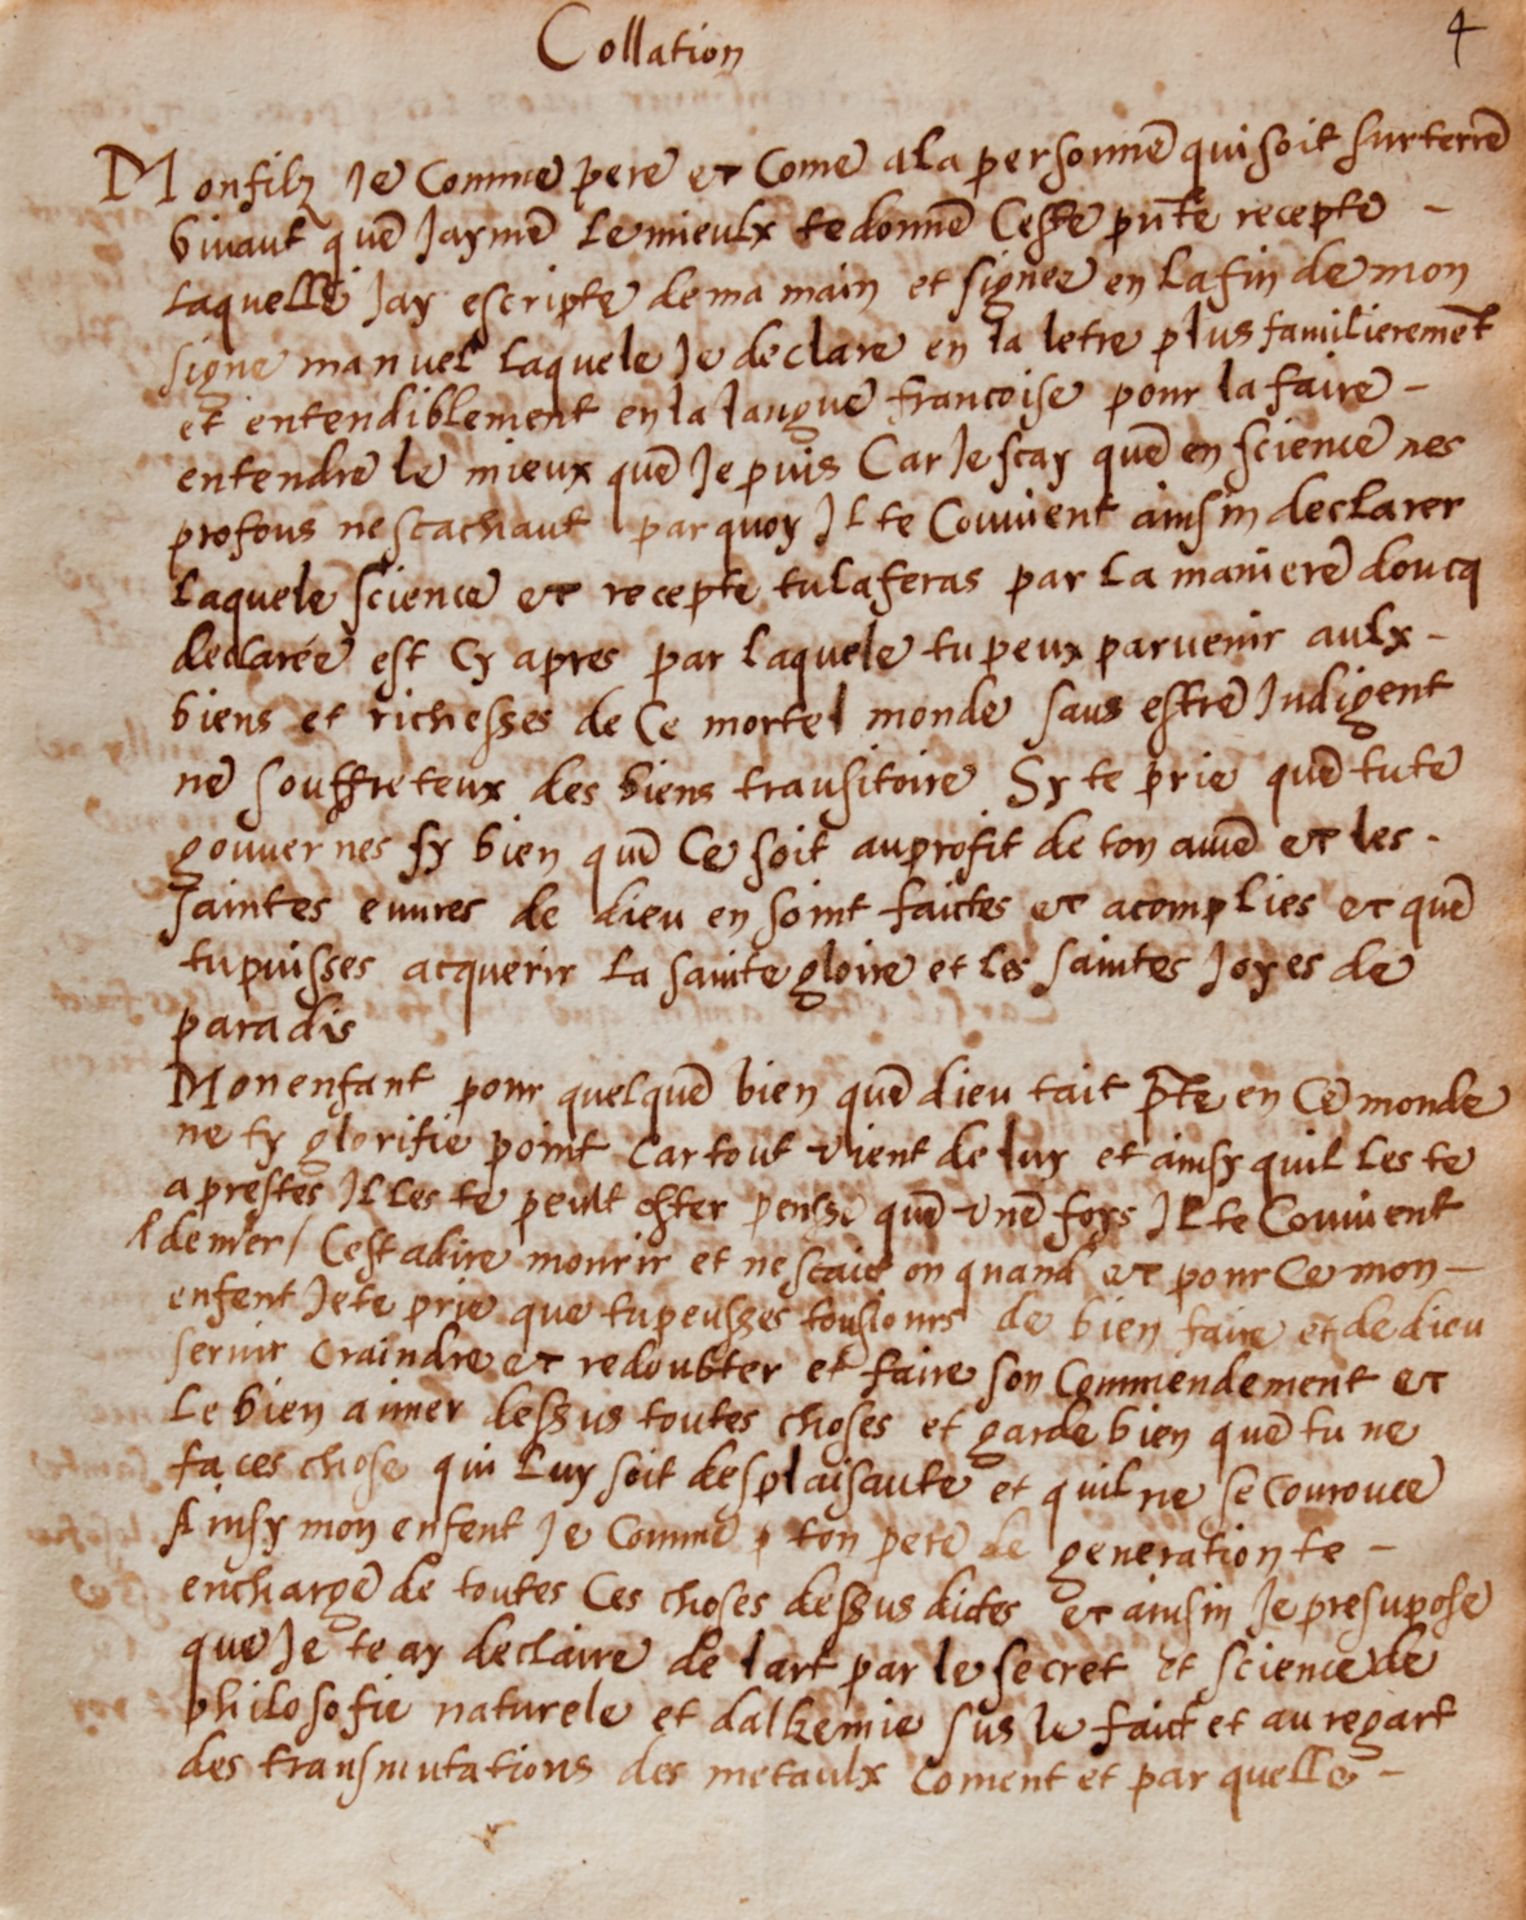 Collation
4
Mon filz Je Comme pere et Come a la personne qui soit sur terre
vivant que Jayme Le mieulx te donne Ceste pnte recepte -
Laquelle Jay escripte de ma main et signee en La fin de mon
signe manuel Laquele Je declare en la letre plus familieremet
et entendiblement en la langue francoise pour la faire -
entendre le mieux que Je puis Car Je scay que en science nes
profons ne scachant par quoy Jl te Convient ainsin declarer
Laquele science et recepte tu la feras par La maniere doucq
declarée est Cy apres par Laquele tu peux parvenir aulx -
biens et richesses de Ce mortel monde sans estre Indigent
ne souffreteux des biens transitoire Sy te prie que tu te
gouvernes sy bien que Ce soit au profit de ton ame et les -
saintes euures de dieu en soint faictes et acomplies et que
tu puisses acquerir La sainte gloire et Les saintes Joyes de
paradis
Mon enfant pour quelque bien que dieu tait pte en Ce monde
ne ty glorifie point car tout vient de luy et ainsy quil Les te
a prestes Jl Les te peult oster pense que vne foys Jl te Convient
/ Cest a dire mourir et ne scait on quand et pour Ce mon -
enfent Je te prie que tu peusses tousiours de bien faire et de dieu
seruir craindre et redoubter et faire son Commendement et
Le bien aimer dessus toutes choses et garde bien que tu ne
faces chose qui Luy soit desplaisante et quil ne se courouce
Ainsy mon enfent Je Comme ton pere de generation te -
encharge de toutes Ces choses dessus dictes et ainsin Je presupose
que Je te ay declaire de lart par le secret et science de
philosofie naturele et dalkemie sus le faict et au regart
des transmutations des metaulx Coment et par quelle -